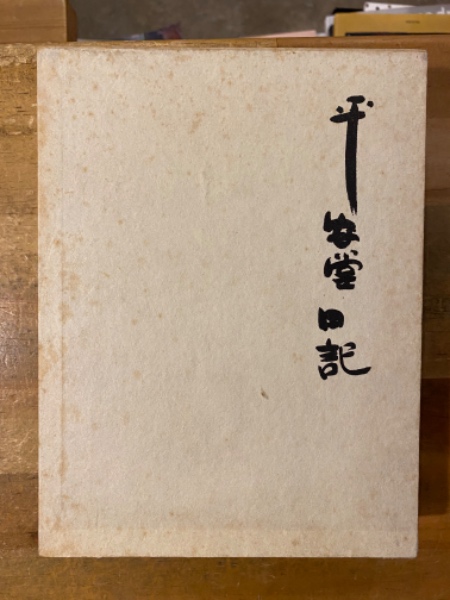 平安堂日記